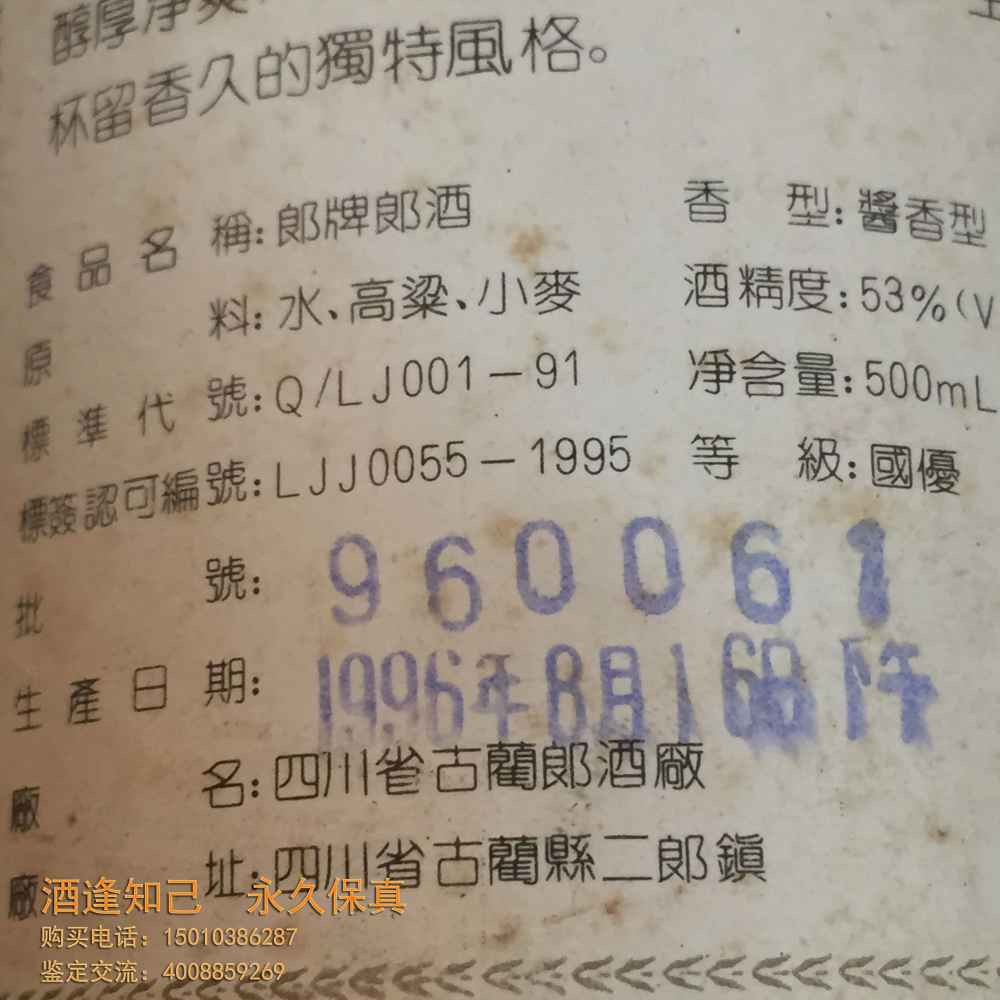 醇厚净爽
杯留香久的獨特風格。
食品名稱:郎牌郎酒 香型:醬香型
原料:水、高粱、小麥 酒精度:53%(V
標準代號:Q/LJ001-91 凈含量:500mL
標簽認可編號:LJJ0055-1995 等級:國優
批號:960061
生產日期:1996年8月16日 下午
廠名:四川省古藺郎酒廠
廠址:四川省古藺縣二郎鎮
酒逢知己 永久保真
购买电话：15010386287
鉴定交流：4008859269